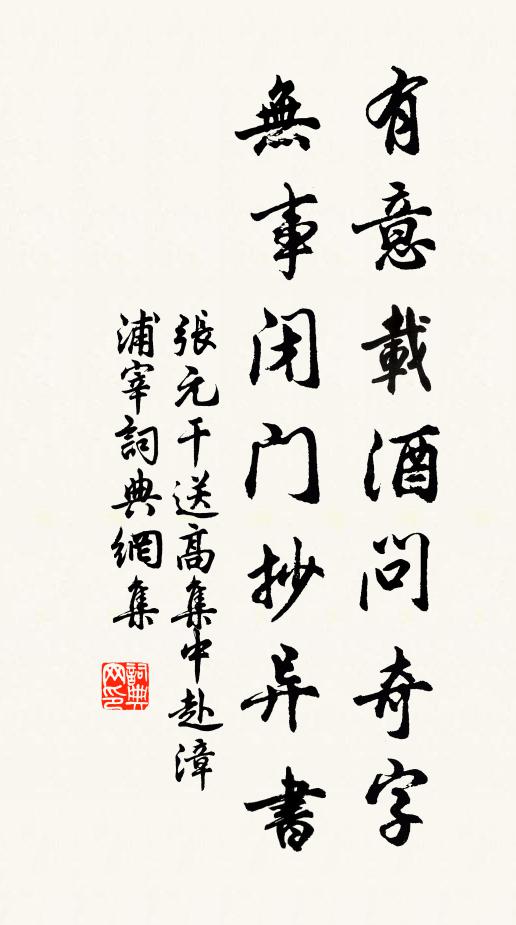 有意載酒问奇字
無事闭门抄异書
張元干送高集中赴漳
浦宰詞典網集
詞典网印